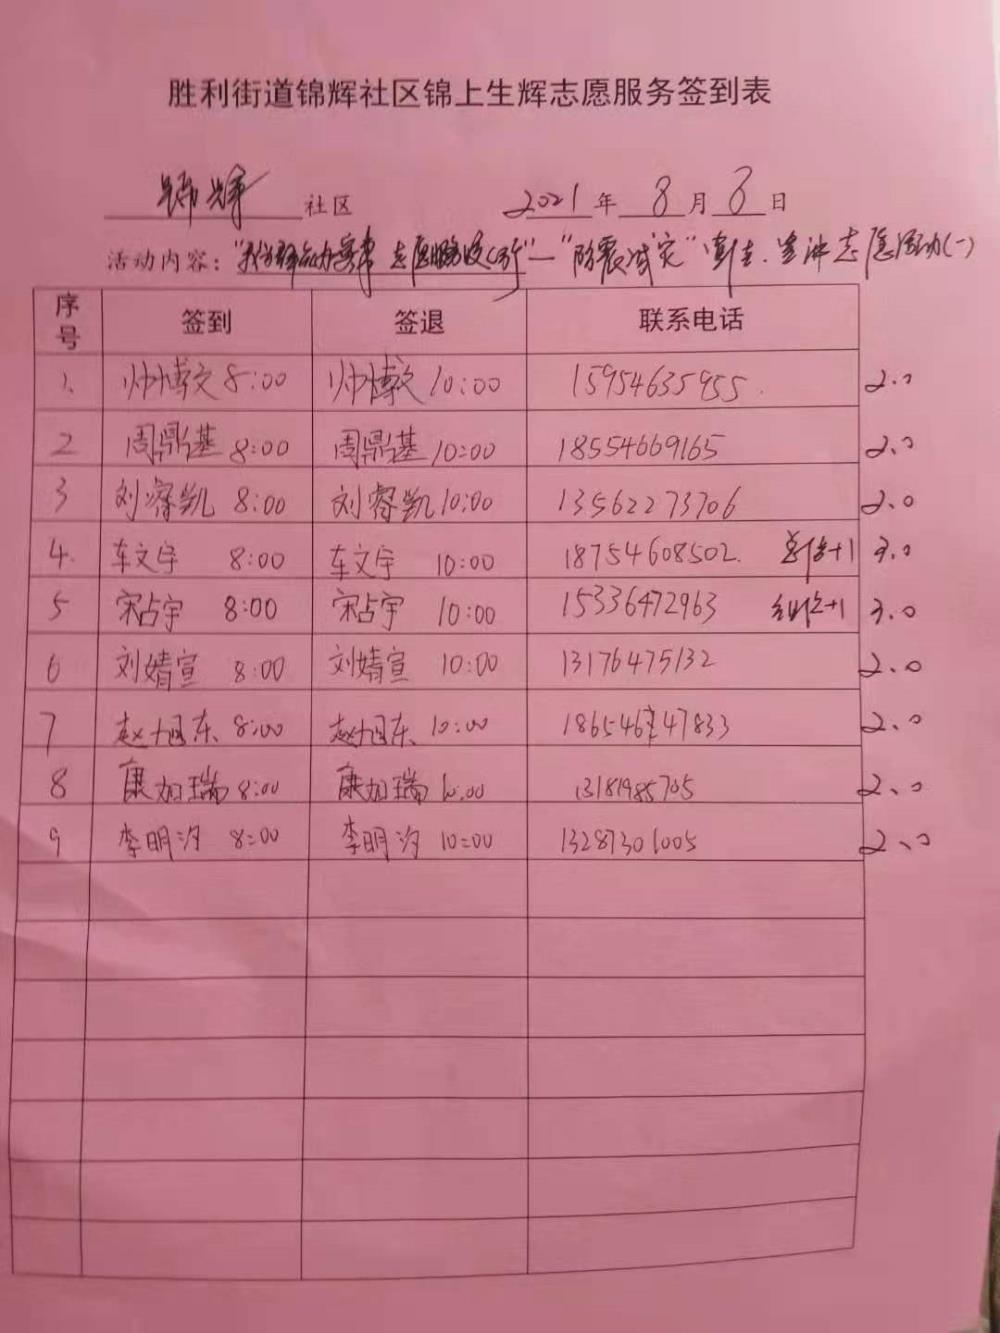 胜利街道锦辉社区锦上生辉志愿服务签到表
锦辉 社区 2021 年 8 月 8 日
活动内容：“我为群众办实事 志愿服务我先行”—“防震减灾” 宣讲志愿活动(一)
序号 签到 签退 联系电话
1、 帅博文 8:00 帅博文 10:00 15954635955. 2.0
2 周鼎基 8:00 周鼎基 10:00 18554669165 2.0
3 刘睿凯 8:00 刘睿凯 10:00 13562273706 2.0
4. 车文宇 8:00 车文宇 10:00 18754608502. +1 3.0
5 宋占宇 8:00 宋占宇 10:00 15336472963 +1 3.0
6 刘婧宣 8:00 刘婧宣 10:00 13176475132 2.0
7 赵旭东 8:00 赵旭东 10:00 18654647833 2.0
8 康如瑞 8:00 康如瑞 10:00 13181985705 2.0
9 李明汐 8:00 李明汐 10:00 13287301005 2.0